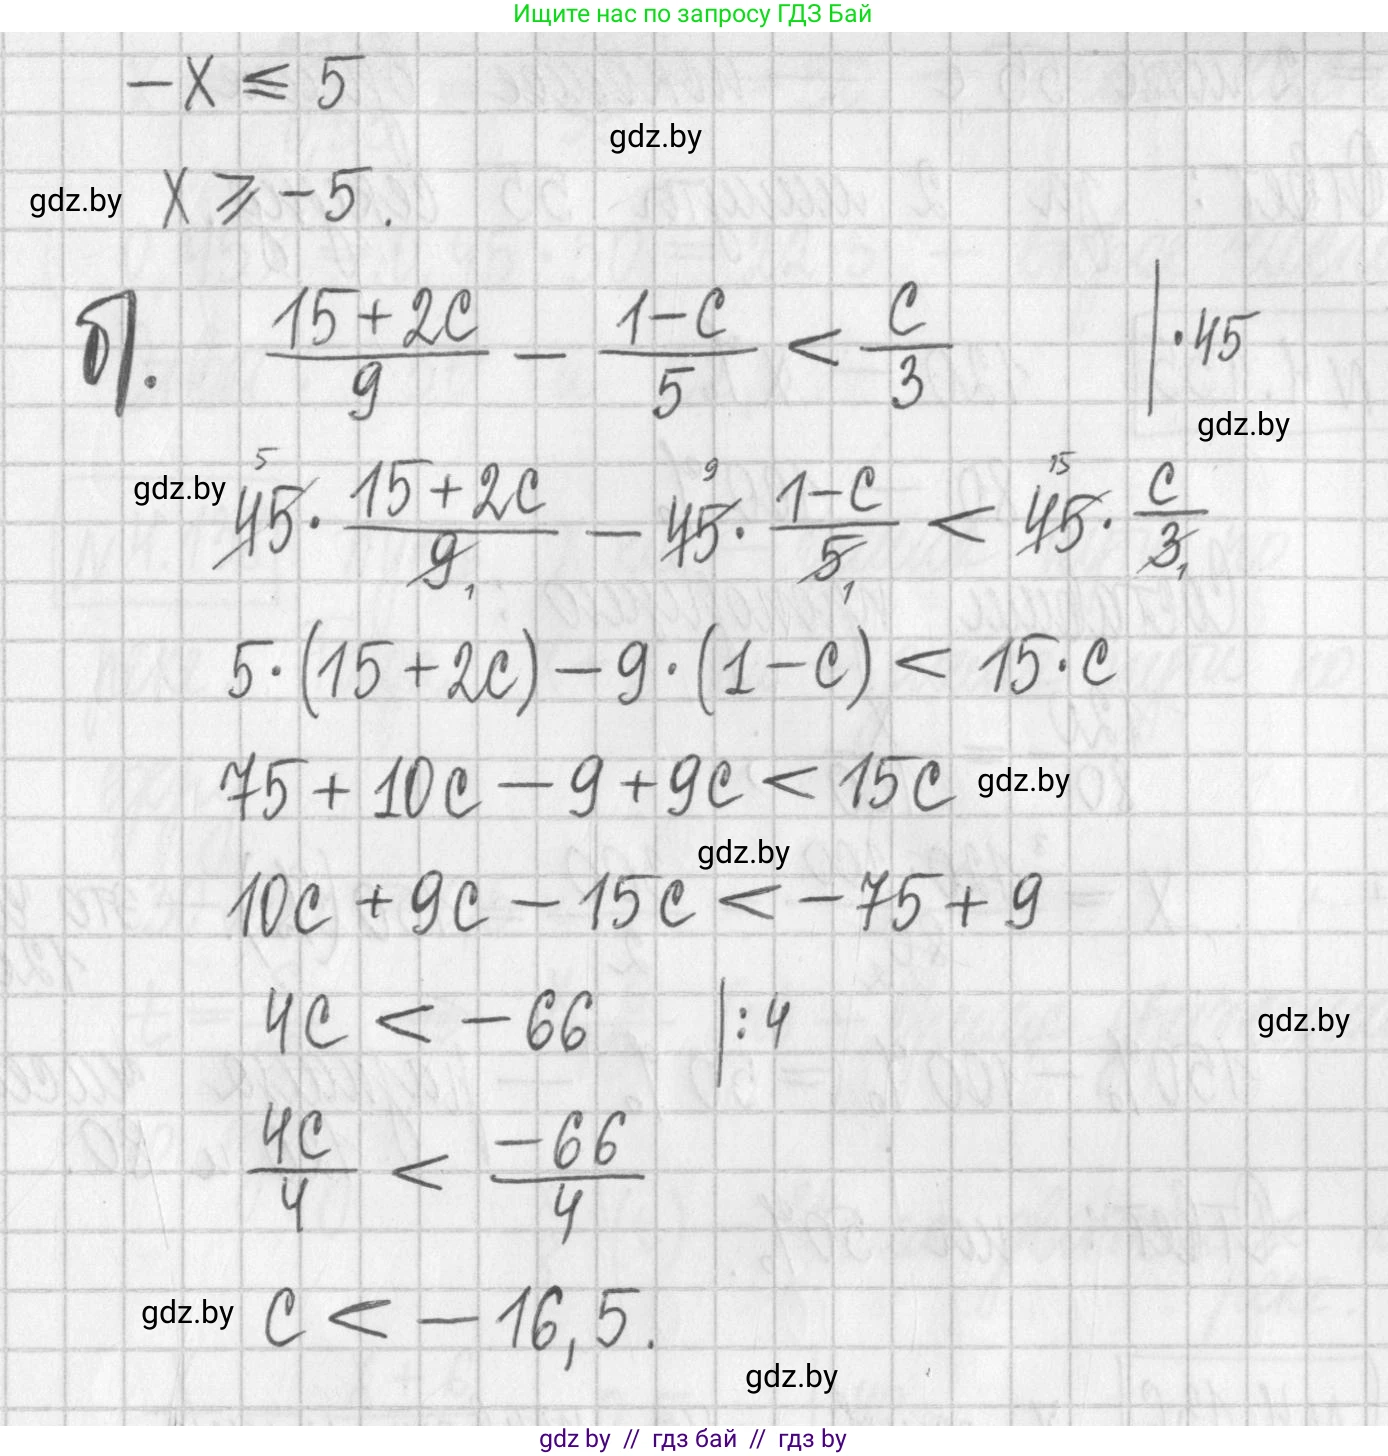 Ищите нас по запросу ГДЗ Бай
−x ⩽ 5
gdz.by
gdz.by x ⩾ −5.
б). (15+2c)/9 − (1−c)/5 < c/3 | ·45
gdz.by
gdz.by 45⁵ · (15+2c)/9₁ − 45⁹ · (1−c)/5₁ < 45¹⁵ · c/3₁
5·(15+2c)−9·(1−c) < 15·c
75+10c−9+9c < 15c gdz.by
gdz.by
10c+9c−15c < −75+9
4c < −66 | :4 gdz.by
4c/4 < −66/4
gdz.by c < −16,5.
gdz.by
gdz by // гдз бай // гдз by